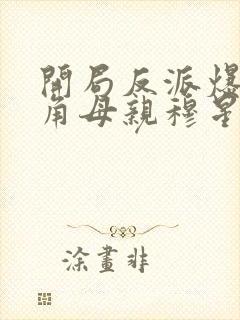 開局反派爆
角母親穆星
涂畫非